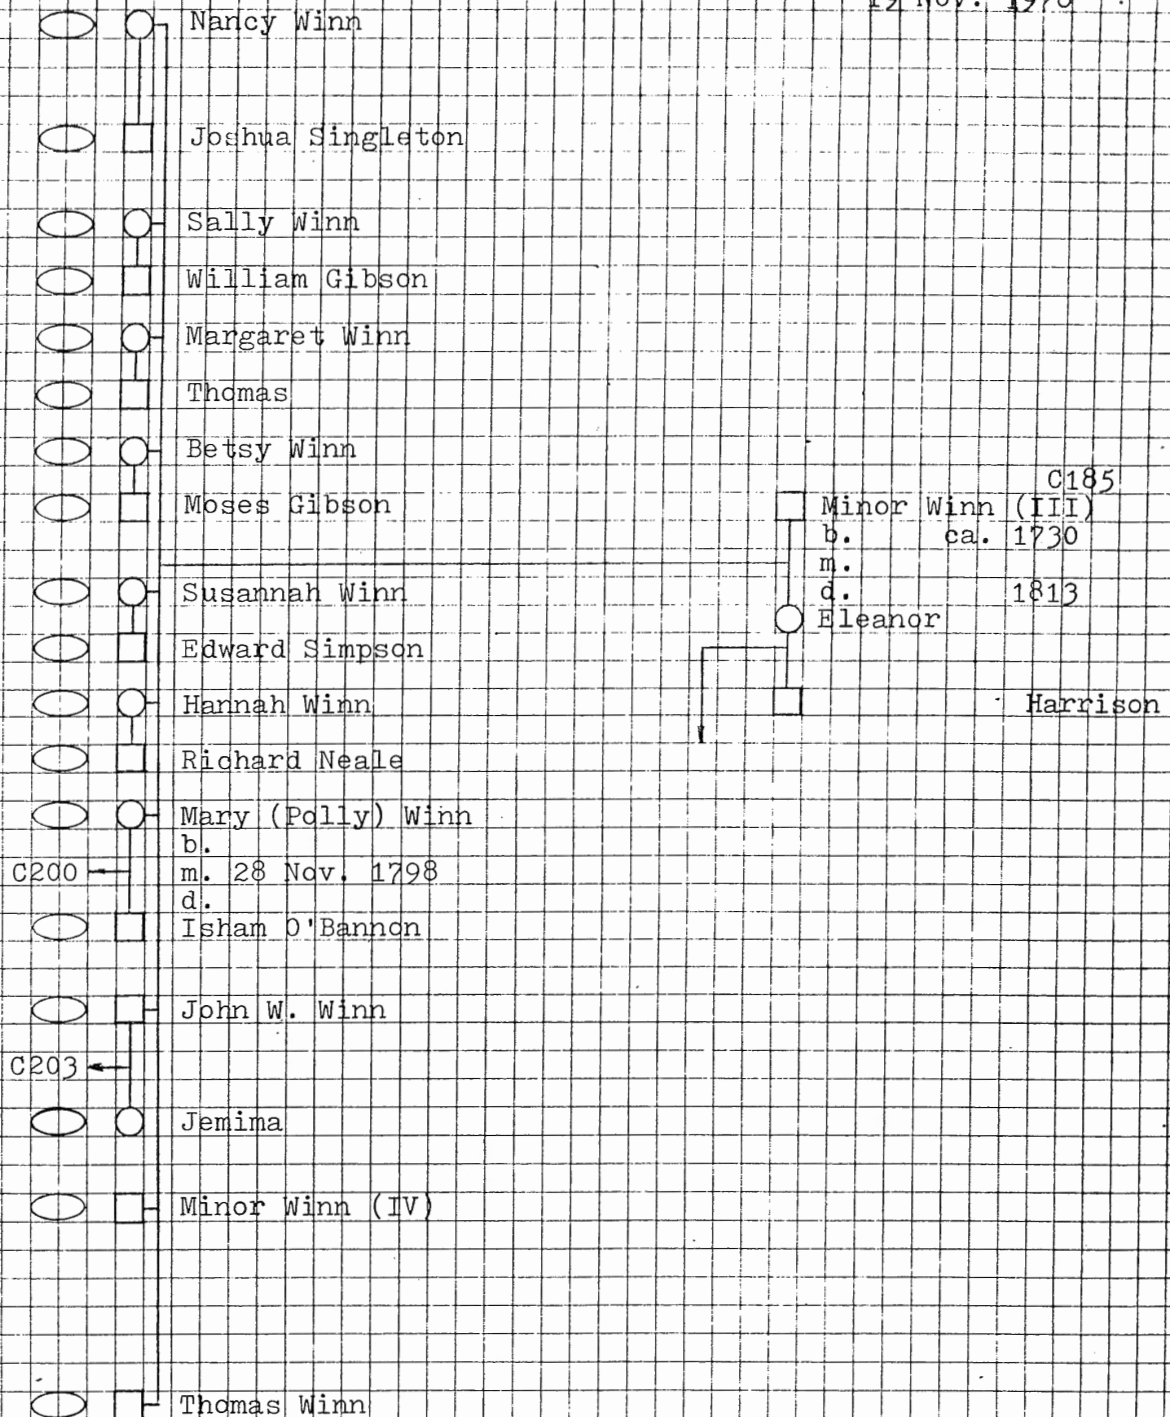 19 Nov. 1970
Nancy Winn
Joshua Singleton
Sally Winn
William Gibson
Margaret Winn
Thomas
Betsy Winn
Moses Gibson
Susannah Winn
Edward Simpson
Hannah Winn
Richard Neale
Mary (Polly) Winn
b.
C200
m. 28 Nov. 1798
d.
Isham O'Bannon
John W. Winn
C203
Jemima
Minor Winn (IV)
Thomas Winn
C185
Minor Winn (III)
b. ca. 1730
m.
d. 1813
Eleanor
Harrison